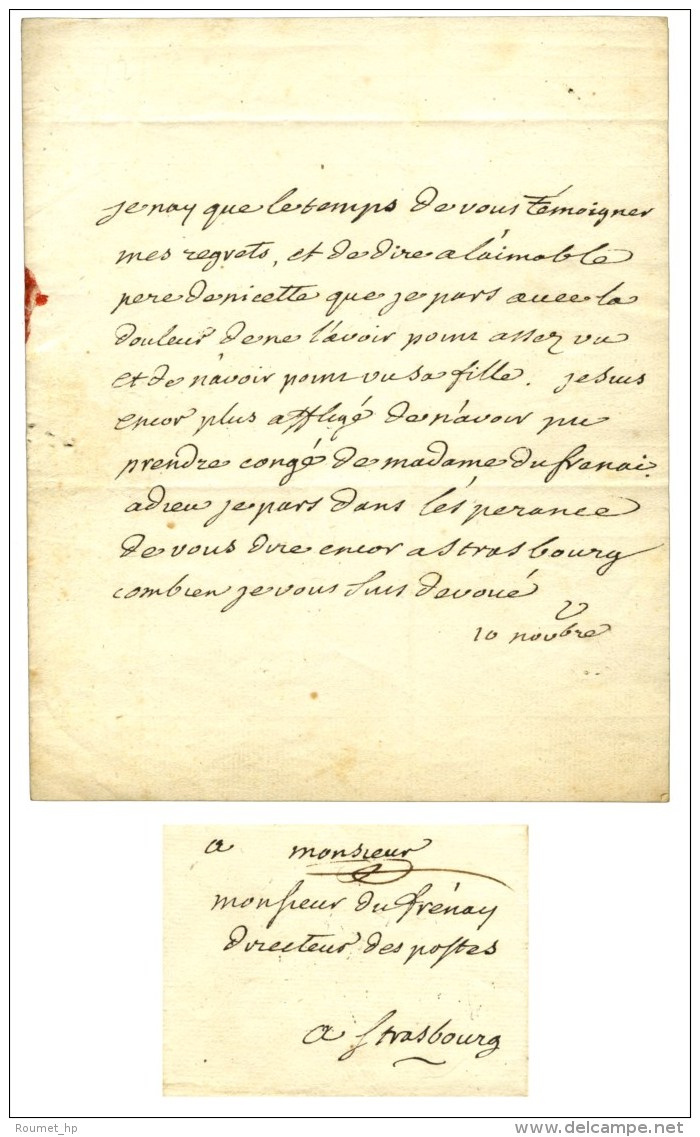 je nay que le temps de vous témoigner
mes regrets, et de dire a l'aimable
pere de nicette que je pars avec la
douleur de ne l'avoir point assez vu
et de n'avoir point vu sa fille. je suis
encor plus affligé de n'avoir pu
prendre congé de madame dufrenai.
adieu je pars dans l'ésperance
de vous dire encor a strasbourg
combien je vous suis devoué
V
10 novbre
a monsieur
monsieur du frénay
directeur des postes
a strasbourg
Roumet_hp
delcampe.net